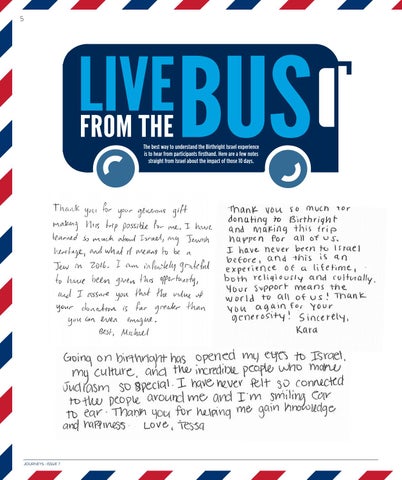 5
LIVE
FROM THE
BUS
The best way to understand the Birthright Israel experience
is to hear from participants firsthand. Here are a few notes
straight from Israel about the impact of those 10 days.
Thank you for your generous gift
making this trip possible for me. I have
learned so much about Israel, my Jewish
heritage, and what it means to be a
Jew in 2016. I am infinitely grateful
to have been given this opportunity,
and I assure you that the value of
your donation is far greater than
you can even imagine.
Best, Michael
Thank you so much for
donating to Birthright
and making this trip
happen for all of us.
I have never been to Israel
before, and this is an
experience of a lifetime,
both religiously and culturally.
Your support means the
world to all of us! Thank
you again for your
generosity! Sincerely,
Kara
Going on birthright has opened my eyes to Israel,
my culture, and the incredible people who make
Judiasm so special. I have never felt so connected
to the people around me and I'm smiling ear
to ear. Thank you for helping me gain knowledge
and happiness. Love, Tessa
JOURNEYS: ISSUE 7